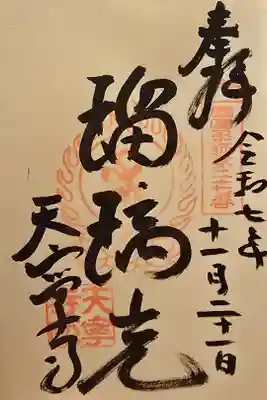 奉拝
令和七年
十一月二十一日
瑠璃光
天寧寺